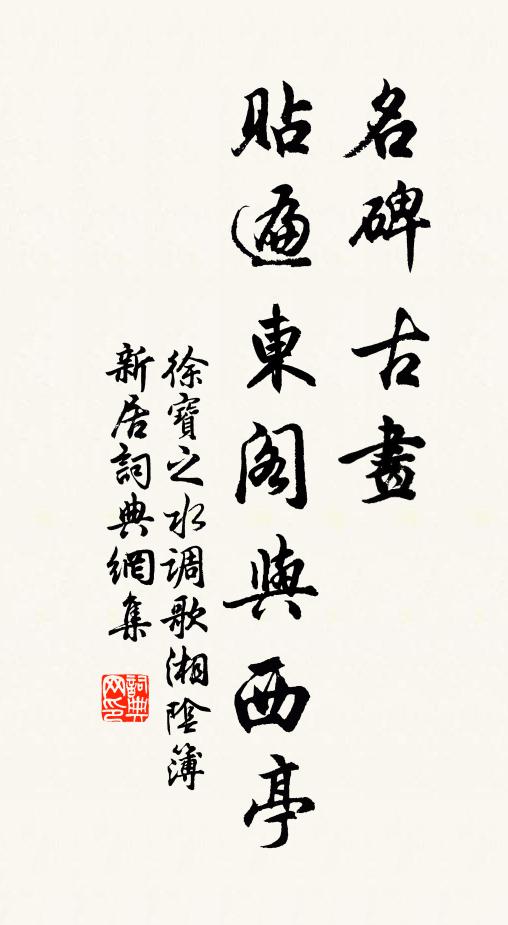 名碑古畫
貼遍東閣與西亭
徐寶之水調歌湘陰簿
新居詞典網集
詞典网印